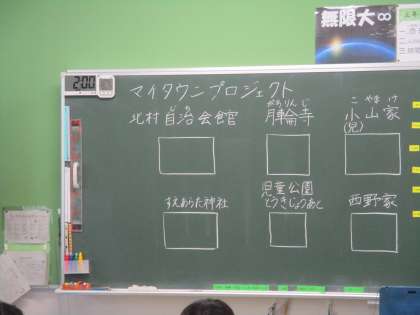 無限大∞
20.0
マイタウンプロジェクト
じち
北村自治会館
がありんじ
月輪寺
こやまけ
小山家
(兄)
すえあらた神社
児童公園
とうきじょうあと
西野家